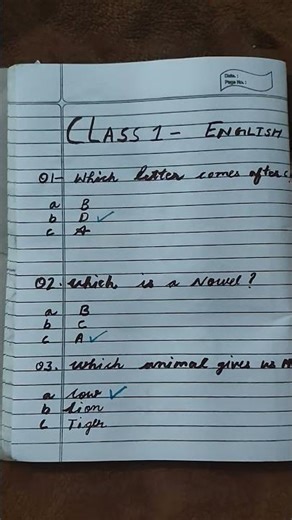 Date :
Page No. :
CLASS 1 - ENGLISH
Q1- Which letter comes after C
a B
b D ✓
c A
Q2. Which is a Nowel?
a B
b C
c A ✓
Q3. Which animal gives us
a Cow ✓
b Lion
c Tiger